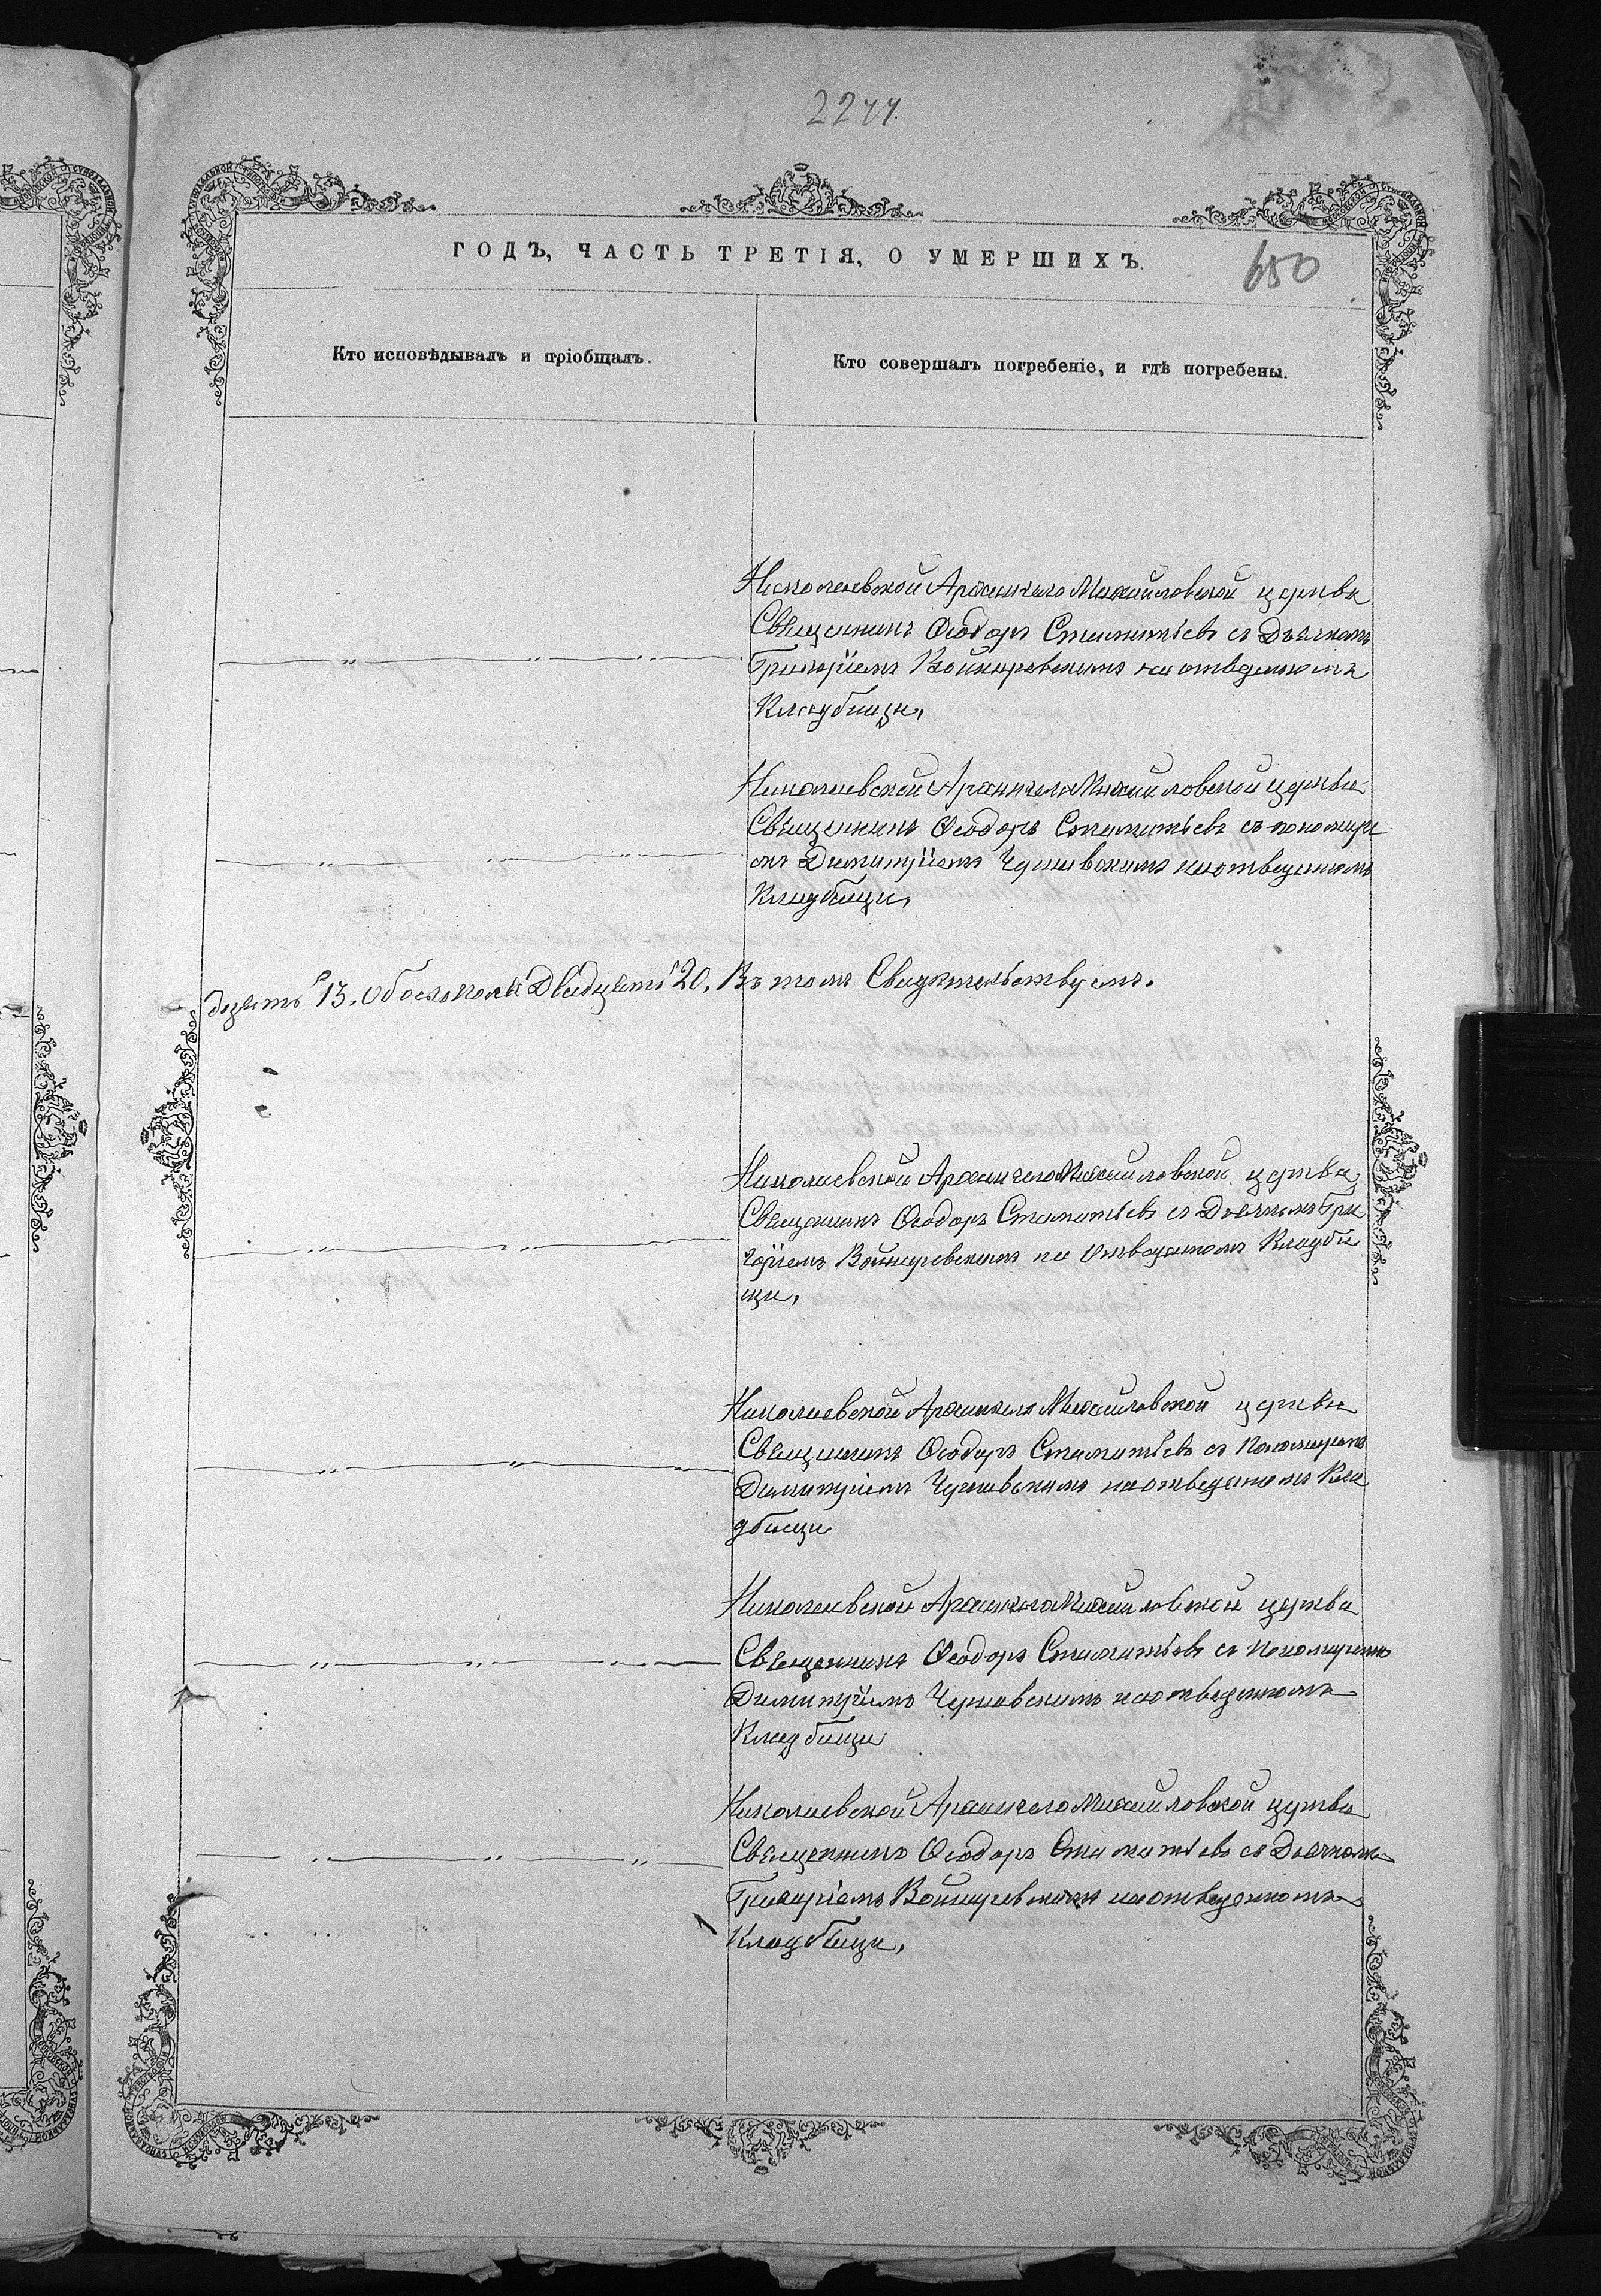 2277.
ГОДЪ, ЧАСТЬ ТРЕТІЯ, О УМЕРШИХЪ.
650
Кто исповѣдывалъ и пріобщалъ.
Кто совершалъ погребеніе, и гдѣ погребены.
Николаевской Архангело Михайловской церкви
Священникъ Ѳеодоръ Стаматьевъ съ Дьячкомъ
Григоріемъ Войнаревскимъ на отведенномъ
Кладбищи,
Николаевской Архангело Михайловской церкви
Священникъ Ѳеодоръ Стаматьевъ съ пономаре
мъ Димитріемъ Чернявскимъ на отведенномъ
Кладбищи,
дцать 13. обоего пола Двадцать 20. Въ томъ Свидѣтельствуемъ.
Николаевской Архангело Михайловской церкви
Священникъ Ѳеодоръ Стаматьевъ съ Дьячкомъ Гри
горіемъ Войнаревскимъ на Отведенномъ Кладби
щи,
Николаевской Архангело Михайловской церкви
Священникъ Ѳеодоръ Стаматьевъ съ Пономаремъ
Димитріемъ Чернявскимъ на отведенномъ Кла
дбищи
Николаевской Архангело Михайловской церкви
Священникъ Ѳеодоръ Стаматьевъ съ Пономаремъ
Димитріемъ Чернявскимъ на отведенномъ
Кладбищи
Николаевской Архангело Михайловской церкви
Священникъ Ѳеодоръ Стаматьевъ съ Дьячкомъ
Григоріемъ Войнаревскимъ на отведенномъ
Кладбищи,